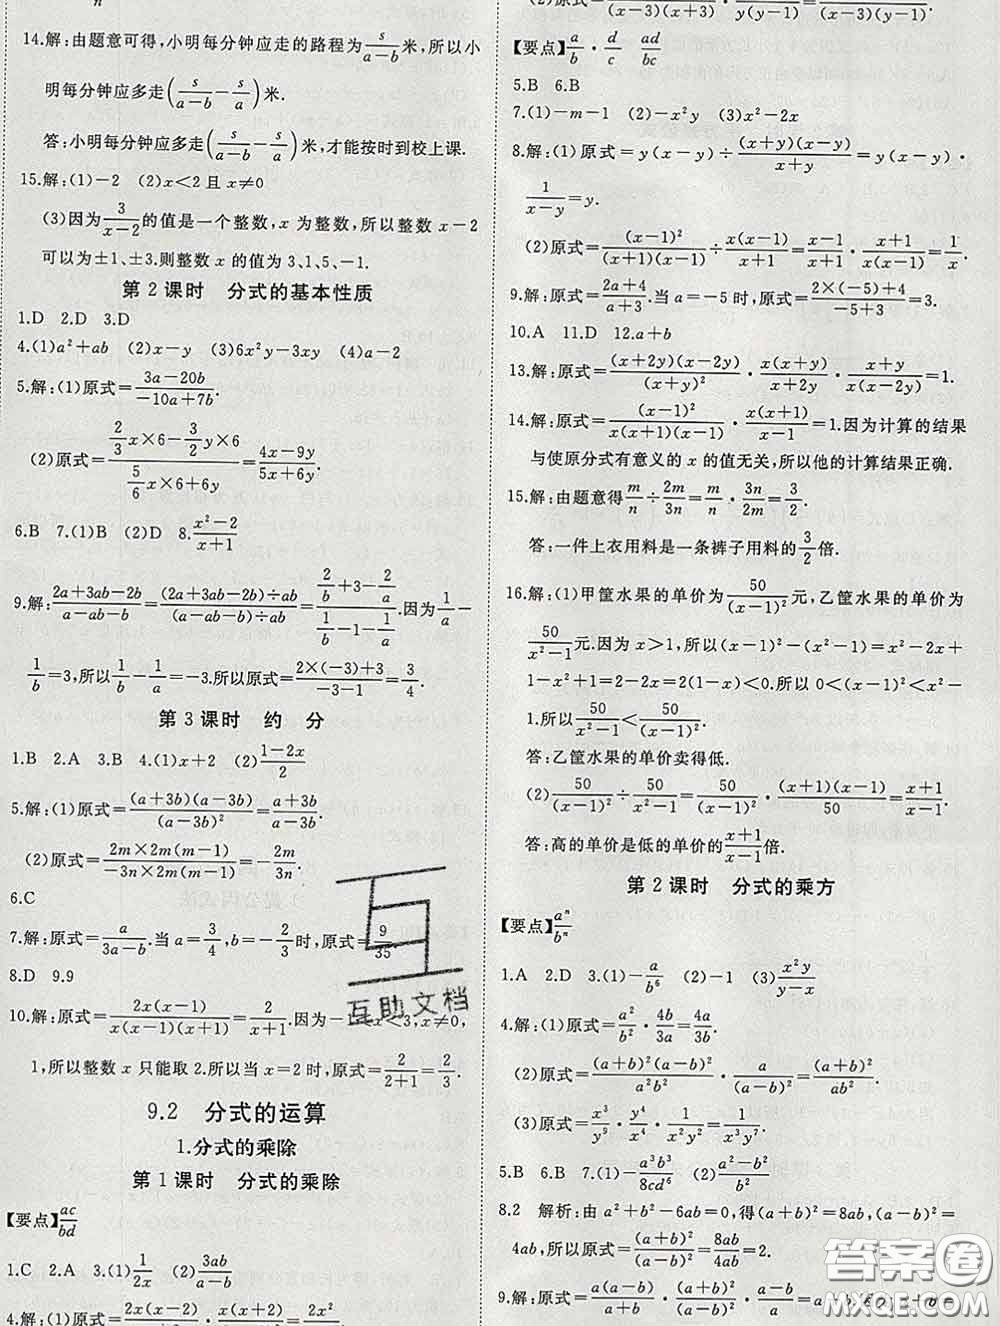 n
14.解:由题意可得,小明每分钟应走的路程为s/(a-b)米,所以小
明每分钟应多走(s/(a-b)-s/a)米.
答:小明每分钟应多走(s/(a-b)-s/a)米,才能按时到校上课.
15.解:(1)-2 (2)x<2且x≠0
(3)因为3/(x-2)的值是一个整数,x为整数,所以整数x-2
可以为±1、±3.则整数x的值为3、1、5、-1.
第2课时 分式的基本性质
1.D 2.D 3.D
4.(1)a²+ab (2)x-y (3)6x²y-3xy (4)a-2
5.解:(1)原式=(3a-20b)/(-10a+7b).
(2)原式=(2/3 x×6-3/2 y×6)/(5/6 x×6+6y)=(4x-9y)/(5x+6y).
6.B 7.(1)B (2)D 8.(x²-2)/(x+1)
9.解:(2a+3ab-2b)/(a-ab-b)=((2a+3ab-2b)÷ab)/((a-ab-b)÷ab)=(2/b+3-2/a)/(1/b-1-1/a).因为1/a-
1/b=3,所以1/b-1/a=-3.所以原式=(2×(-3)+3)/(-3-1)=3/4.
第3课时 约 分
1.B 2.A 3.B 4.(1)x+2 (2)(1-2x)/2
5.解:(1)原式=(a+3b)(a-3b)/(a-3b)²=(a+3b)/(a-3b).
(2)原式=2m×2m(m-1)/(-3n×2m(m-1))=-2m/3n.
6.C
7.解:原式=a/(3a-b).当a=3/4,b=-2/3时,原式=9/35.
8.D 9.9
10.解:原式=2x(x-1)/(x(x-1)(x+1))=2/(x+1).因为- x<3,x≠0,
1,所以整数x只能取2.所以当x=2时,原式=2/(2+1)=2/3.
9.2 分式的运算
1.分式的乘除
第1课时 分式的乘除
【要点】ac/bd
1.C 2.A 3.(1)1/2x (2)3ab/(a-b)
4.解:(1)原式=2x(x-2)/ · x(x+2)/ =2x²/
(2)原式= /((x-3)(x+3)) · /(y(y-1)) = /((x-3)(y-1)).
【要点】a/b · d/c ad/bc
5.B 6.B
7.(1)-m-1 (2)-x²y (3)x²-2x
8.解:(1)原式=y(x-y)÷(x+y)(x-y)/(x+y)=y(x-y)·
1/(x-y)=y.
(2)原式=(x-1)²/((x+1)(x-1))÷x(x-1)/(x+1)=(x-1)/(x+1)·(x+1)/(x(x-1))=1/x.
9.解:原式=(2a+4)/(a+3).当a=-5时,原式=(2×(-5)+4)/(-5+3)=3.
10.A 11.D 12.a+b
13.解:原式=(x+2y)(x-2y)/(x+y)²·(x+y)/(x+2y)·x(x+y)/(x(x-2y))=1.
14.解:原式=(x-1)²/((x+1)(x-1))·x(x+1)/(x-1)=1.因为计算的结果
与使原分式有意义的x的值无关,所以他的计算结果正确.
15.解:由题意得m/n÷2m/3n=m/n·3n/2m=3/2.
答:一件上衣用料是一条裤子用料的3/2倍.
16.解:(1)甲筐水果的单价为50/(x-1)²元,乙筐水果的单价为
50/(x²-1)元.因为x>1,所以(x-1)²-(x²-1)=x²-2x+
1-x²+1=2-2x=2(1-x)<0.所以0<(x-1)²<x²-
1.所以50/(x²-1)<50/(x-1)².
答:乙筐水果的单价卖得低.
(2)50/(x-1)²÷50/(x²-1)=50/(x-1)²·(x+1)(x-1)/50=(x+1)/(x-1).
答:高的单价是低的单价的(x+1)/(x-1)倍.
第2课时 分式的乘方
【要点】aⁿ/bⁿ
1.A 2.D 3.(1)-a/b⁶ (2)-1 (3)x²y/(y-x)
4.解:(1)原式=a²/b²·4b/3a=4a/3b.
(2)原式=(a+b)²(a-b)²/a²b²·a/(a-b)²=(a+b)²/ab².
(3)原式=x³/y⁹·y⁴/x²·1/x⁴y²=1/x³y⁷.
5.B 6.B 7.(1)-a³b³/8cd⁶ (2)(a²-b²)/b²
8.2 解析:由a²+b²-6ab=0,得(a+b)²=8ab,(a-b)²=
4ab,所以原式=(a+b)²/(a-b)²=8ab/4ab=2.
9.解:原式=a(a-b)/(a+b)·(a+b)²/(a-b)²·(a-b)/a=a+b.
互助文档
答案圈
MXQE.COM